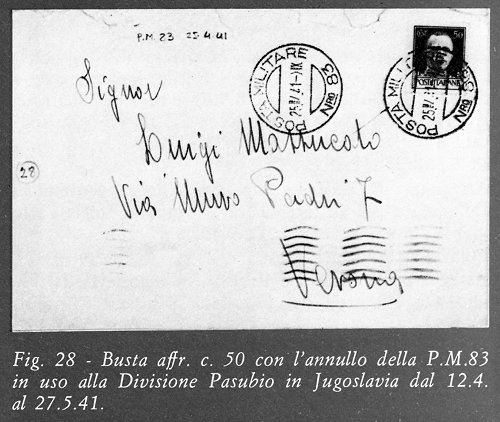 P.M. 23 25.4.41
POSTA MILITARE
25 IV 41-XIX
Nro 83
50 50
POSTE ITALIANE
POSTA MILITARE
Nro 83
Signor
Luigi Mattucato
Via Muro Padri 7
Verona
28
Fig. 28 - Busta affr. c. 50 con l'annullo della P.M.83
in uso alla Divisione Pasubio in Jugoslavia dal 12.4.
al 27.5.41.